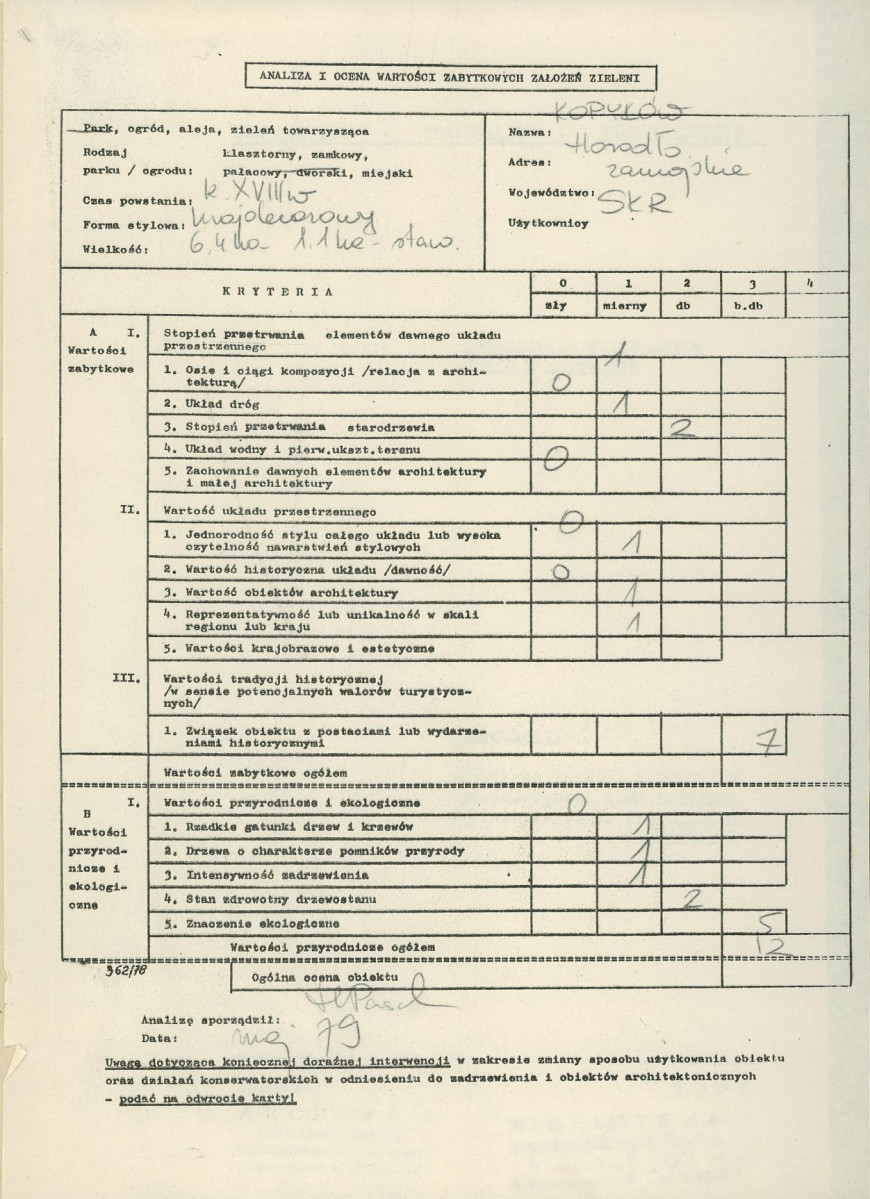 ANALIZA I OCENA WARTOŚCI ZABYTKOWYCH ZAŁOŻEŃ ZIELENI
Park, ogród, aleja, zieleń towarzysząca
Rodzaj klasztorny, zamkowy,
parku / ogrodu: pałacowy, dworski, miejski
Czas powstania: k XVIII w
Forma stylowa: krajobrazowy
Wielkość: 6,4 ha 1.1 ha - staw.
KOPYŁÓW
Nazwa: Horodło
Adres: zamojskie
Województwo: SKR
Użytkownicy
KRYTERIA
0 1 2 3 4
zły mierny db b.db
A I. Stopień przetrwania elementów dawnego układu
Wartości przestrzennego 1
zabytkowe 1. Osie i ciągi kompozycji /relacja z archi-
tekturą/ 0
2. Układ dróg 1
3. Stopień przetrwania starodrzewia 2
4. Układ wodny i pierw.ukszt.terenu 0
5. Zachowanie dawnych elementów architektury
i małej architektury
II. Wartość układu przestrzennego 0
1. Jednorodność stylu całego układu lub wysoka
czytelność nawarstwień stylowych 1
2. Wartość historyczna układu /dawność/ 0
3. Wartość obiektów architektury 1
4. Reprezentatywność lub unikalność w skali
regionu lub kraju 1
5. Wartości krajobrazowe i estetyczne
III. Wartości tradycji historycznej
/w sensie potencjalnych walorów turystycz-
nych/
1. Związek obiektu z postaciami lub wydarze-
niami historycznymi 7
Wartości zabytkowe ogółem
B I. Wartości przyrodnicze i ekologiczne 0
Wartości 1. Rzadkie gatunki drzew i krzewów 1
przyrod- 2. Drzewa o charakterze pomników przyrody 1
nicze i 3. Intensywność zadrzewienia 1
ekologi- 4. Stan zdrowotny drzewostanu 2
czne 5. Znaczenie ekologiczne 5
Wartości przyrodnicze ogółem 12
362/78
Ogólna ocena obiektu
Analizę sporządził:
Data: maj 79
Uwagę dotyczącą koniecznej doraźnej interwencji w zakresie zmiany sposobu użytkowania obiektu
oraz działań konserwatorskich w odniesieniu do zadrzewienia i obiektów architektonicznych
- podać na odwrocie karty!